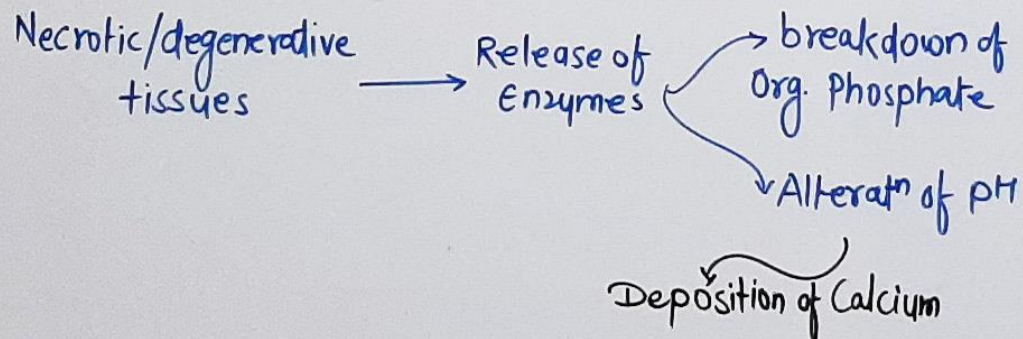 Necrotic/degenerative
tissues
Release of
Enzymes
breakdown of
Org. Phosphate
Alteratn of pH
Deposition of Calcium